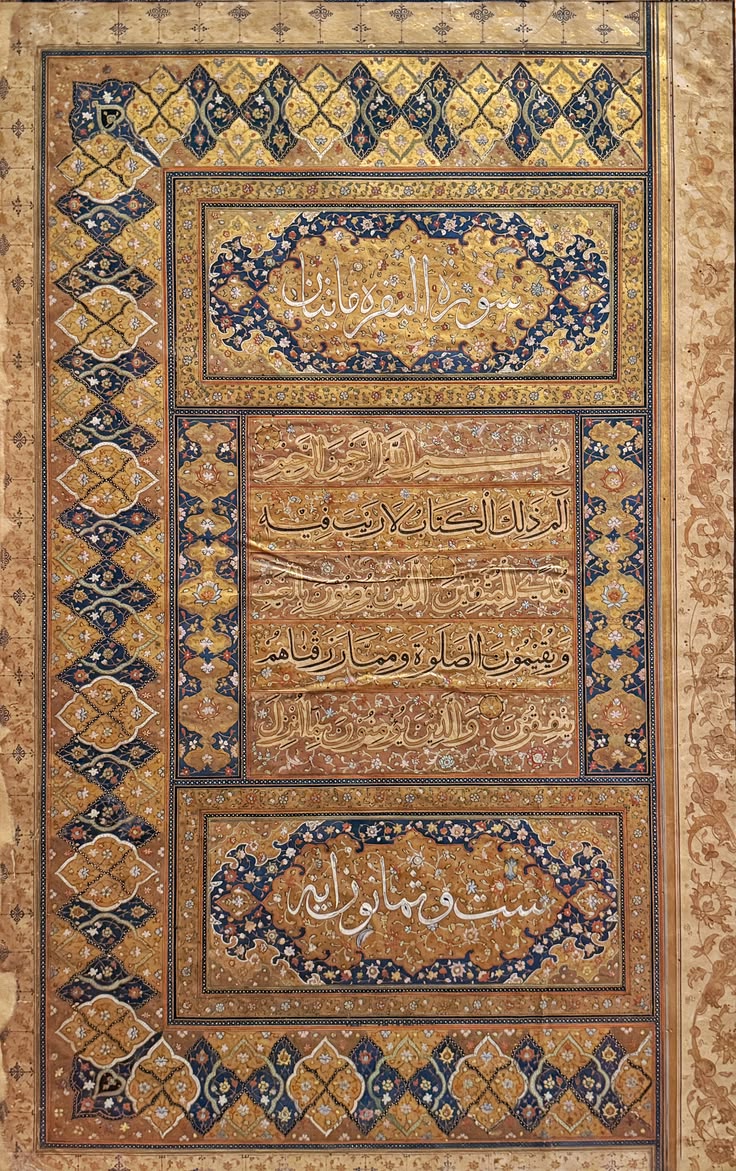 سورة البقرة مايتان
بسم الله الرحمن الرحيم
آلم ذٰلِكَ الْكتَابُ لَا رَيْبَ فيْه
هُدًى لِلْمُتَّقينَ الَّذينَ يُؤمنُونَ بِالْغَيْبِ
وَيُقيمُونَ الصَّلٰوةَ وَممَّا رَزَقْنَاهُمْ
يُنْفِقُونَ وَالَّذينَ يُؤْمنُونَ بِمَا اُنْزِلَ
ست و ثمانون ايه